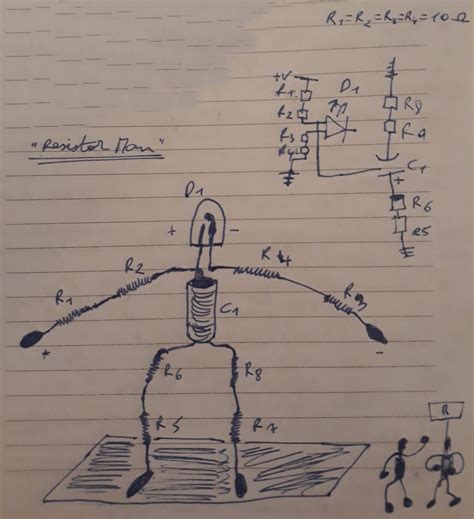 R1=R2=R3=R4=10Ω
+V
D1
R1
R2
R3
R4
R8
R7
C1
+
R6
R5
"Resistor Man"
D1
+ -
R1 R2 R4 R3
C1
+ -
R6 R8
R5 R7
R